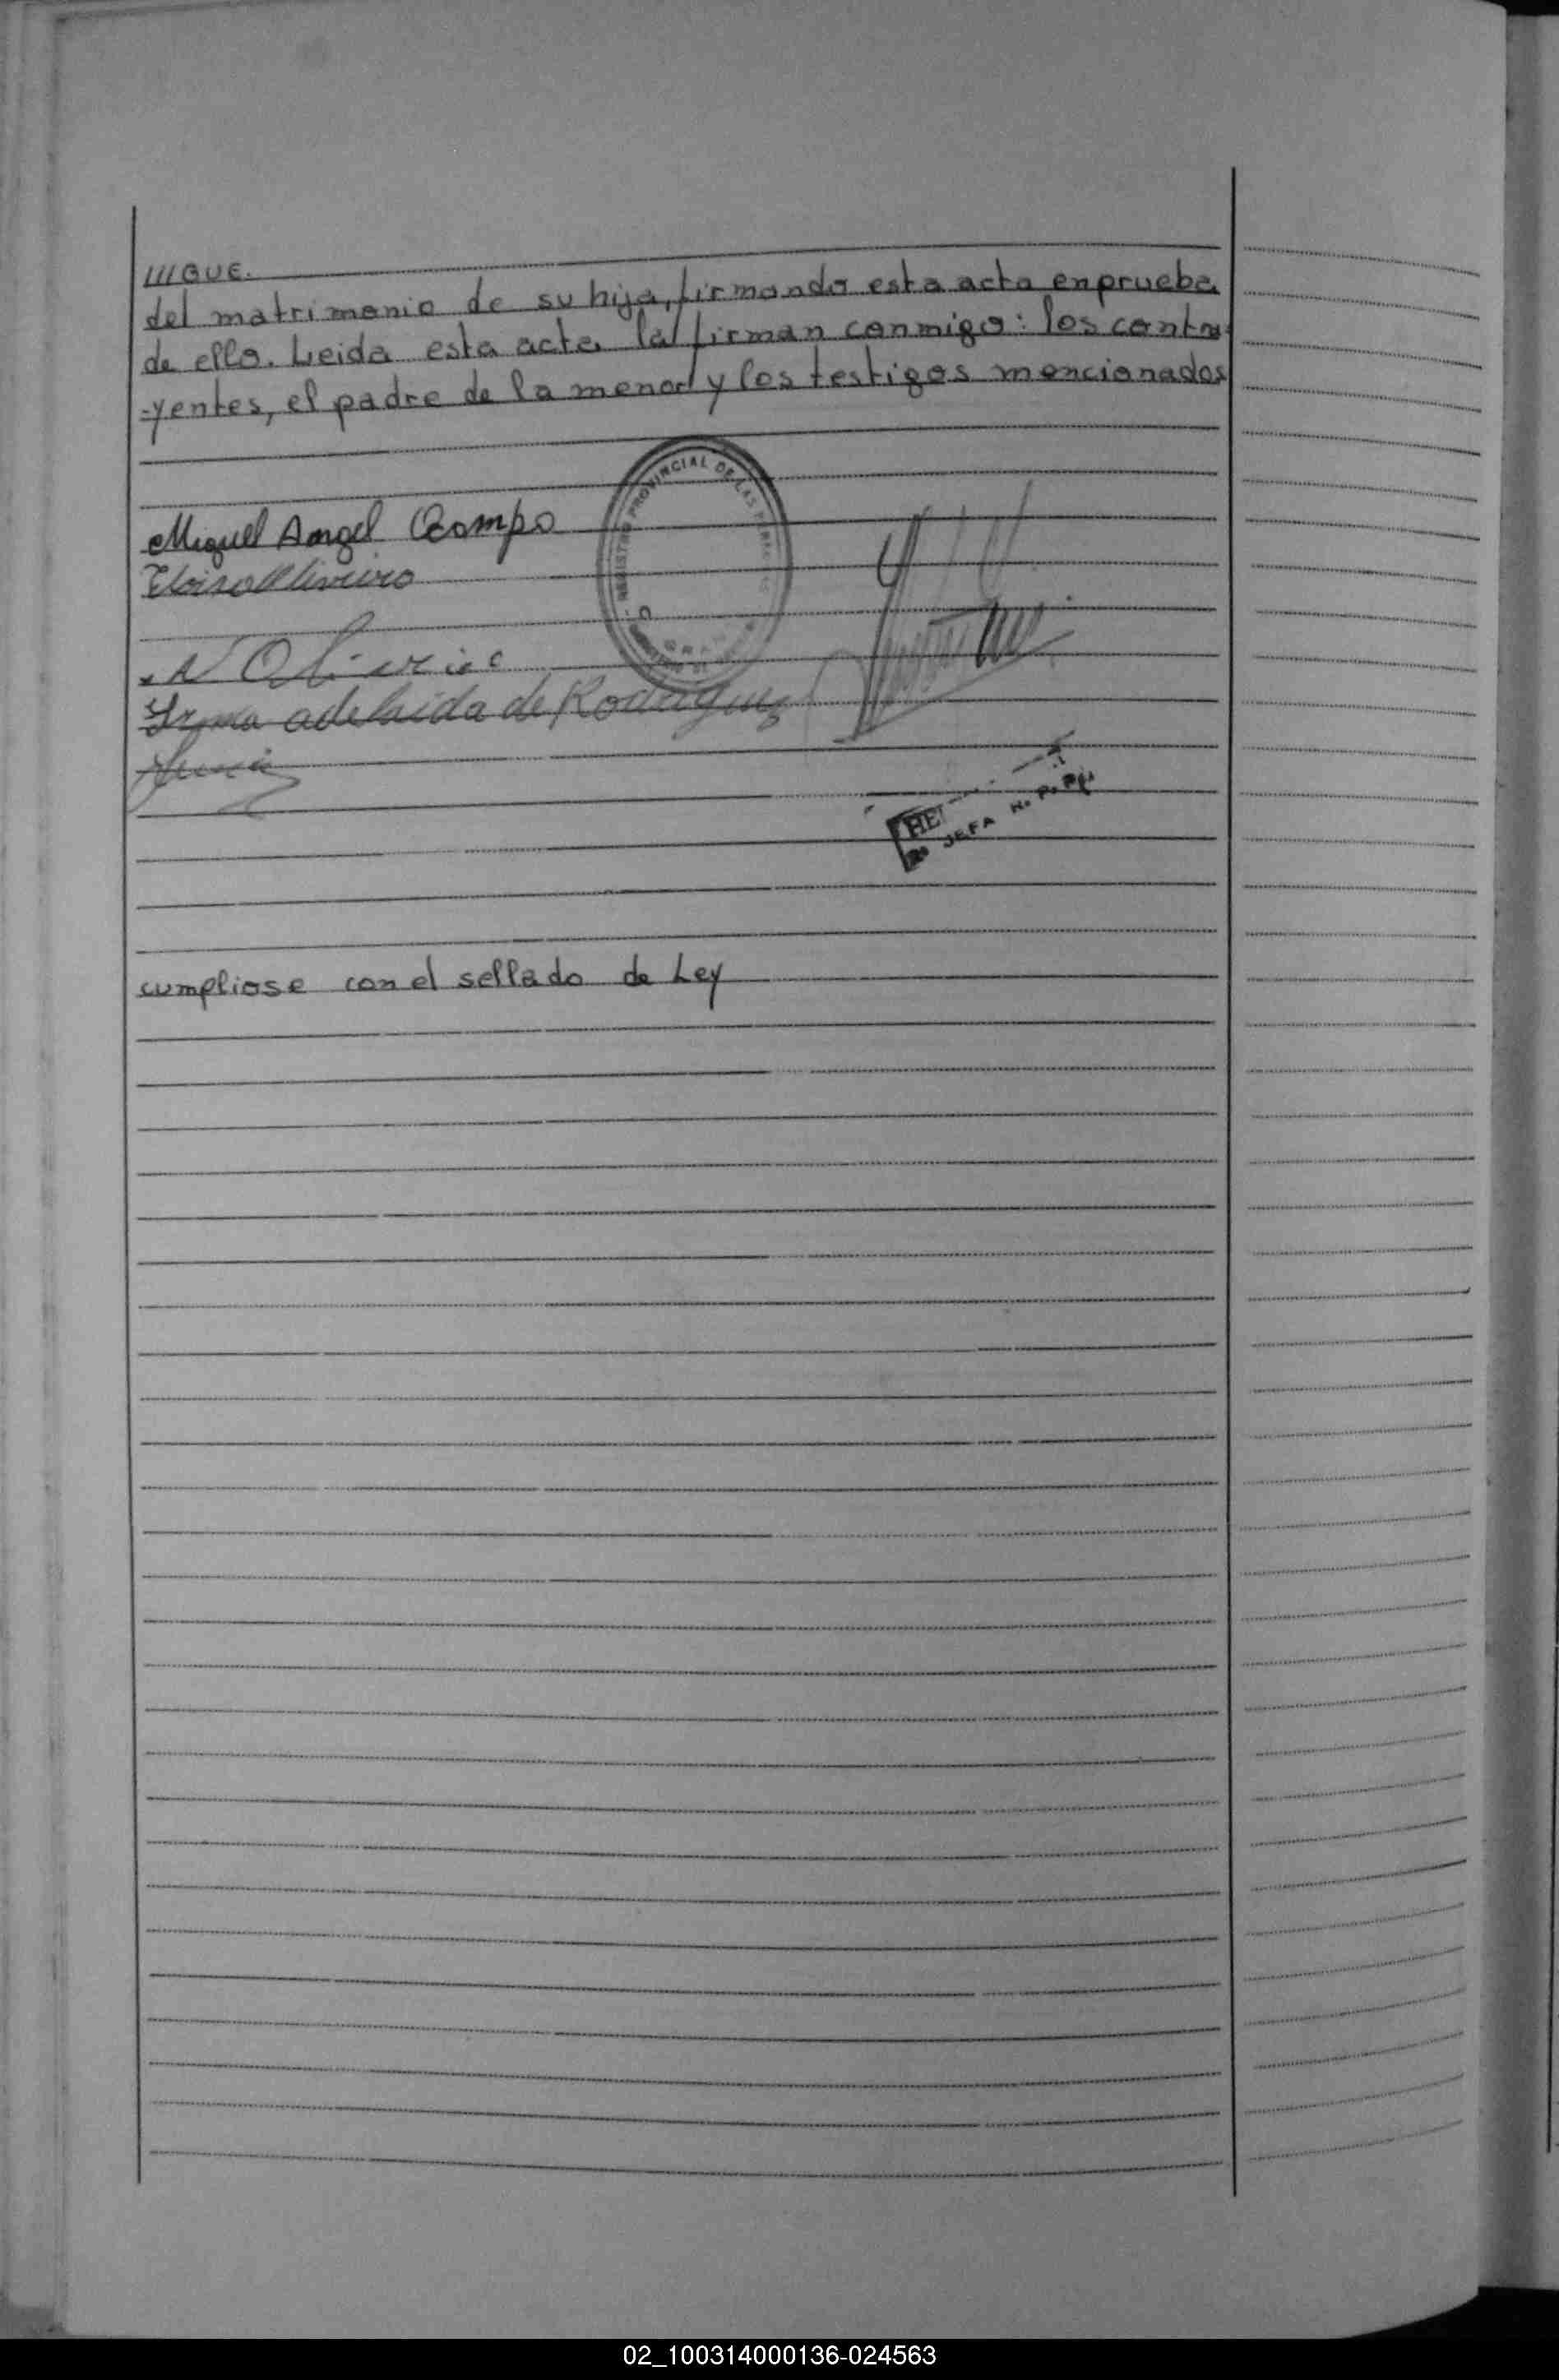 ///GUE.
del matrimonio de su hija, firmando esta acta en prueba
de ello. Leida esta acta la firman conmigo: los contra-
-yentes, el padre de la menor y los testigos mencionados
Miguel Angel Ocampo
REGISTRO PROVINCIAL DE LAS PERSONAS
Eloisa Oliveira
N Oliveira
Irma adelaida de Rodriguez
JEFA R. P. P.
cumpliose con el sellado de Ley
02_100314000136-024563